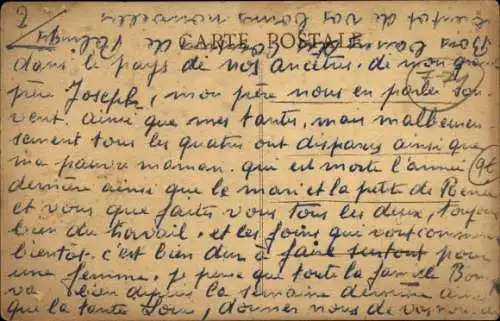 2
CARTE POSTALE
dans le pays de nos ancêtres. de mon grand
père Joseph, mon père nous en parler sou
vent. ainsi que mes tantes, mais malheureu
sement tous les quatre ont disparus ainsi que
ma pauvre maman. qui est morte l'année
dernière ainsi que le mari et la petite de
et vous que faites vous tous les deux, toujours
bien du travail. et les foins qui vont commencer
bientôt. c'est bien dur à faire surtout pour
une femme. je pense que toute la famille Bon
va bien depuis la semaine dernière ainsi
que la tante donner nous de vos nouvelles